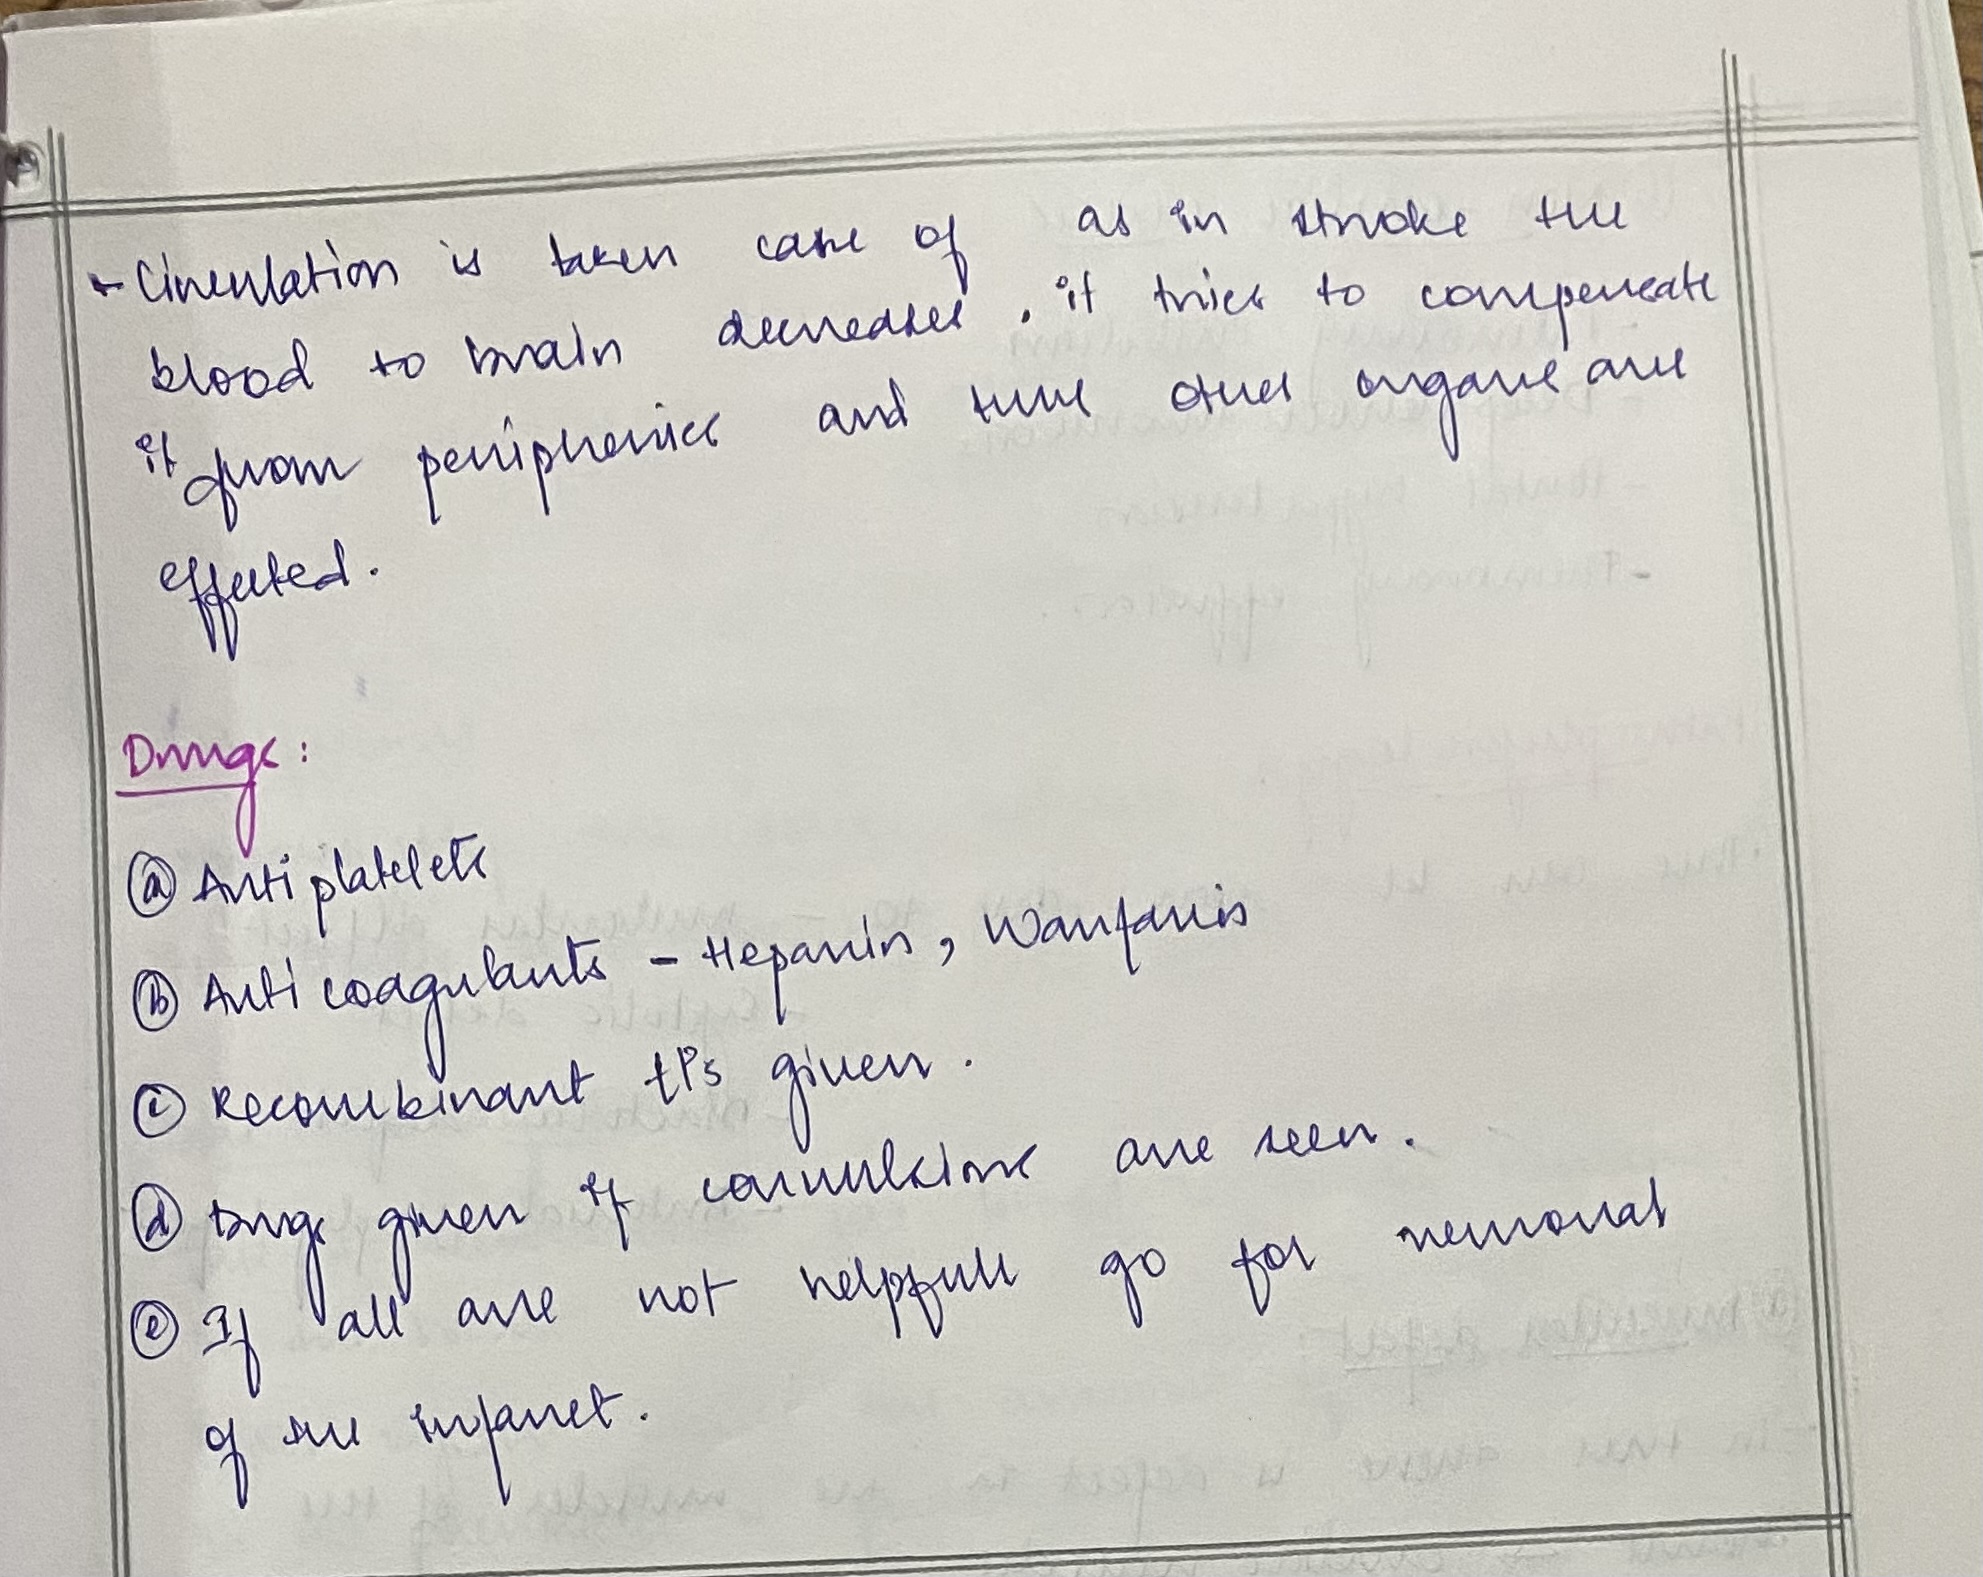 - Circulation is taken care of as in stroke the
blood to brain decreases, it tries to compensate
it from peripheries and thus other organs are
effected.
Drugs:
ⓐ Antiplatelets
ⓑ Anticoagulants - Heparin, Warfarin
ⓒ Recombinant tPs given.
ⓓ Drugs given if convulsions are seen.
ⓔ If all are not helpfull go for removal
of the infarct.